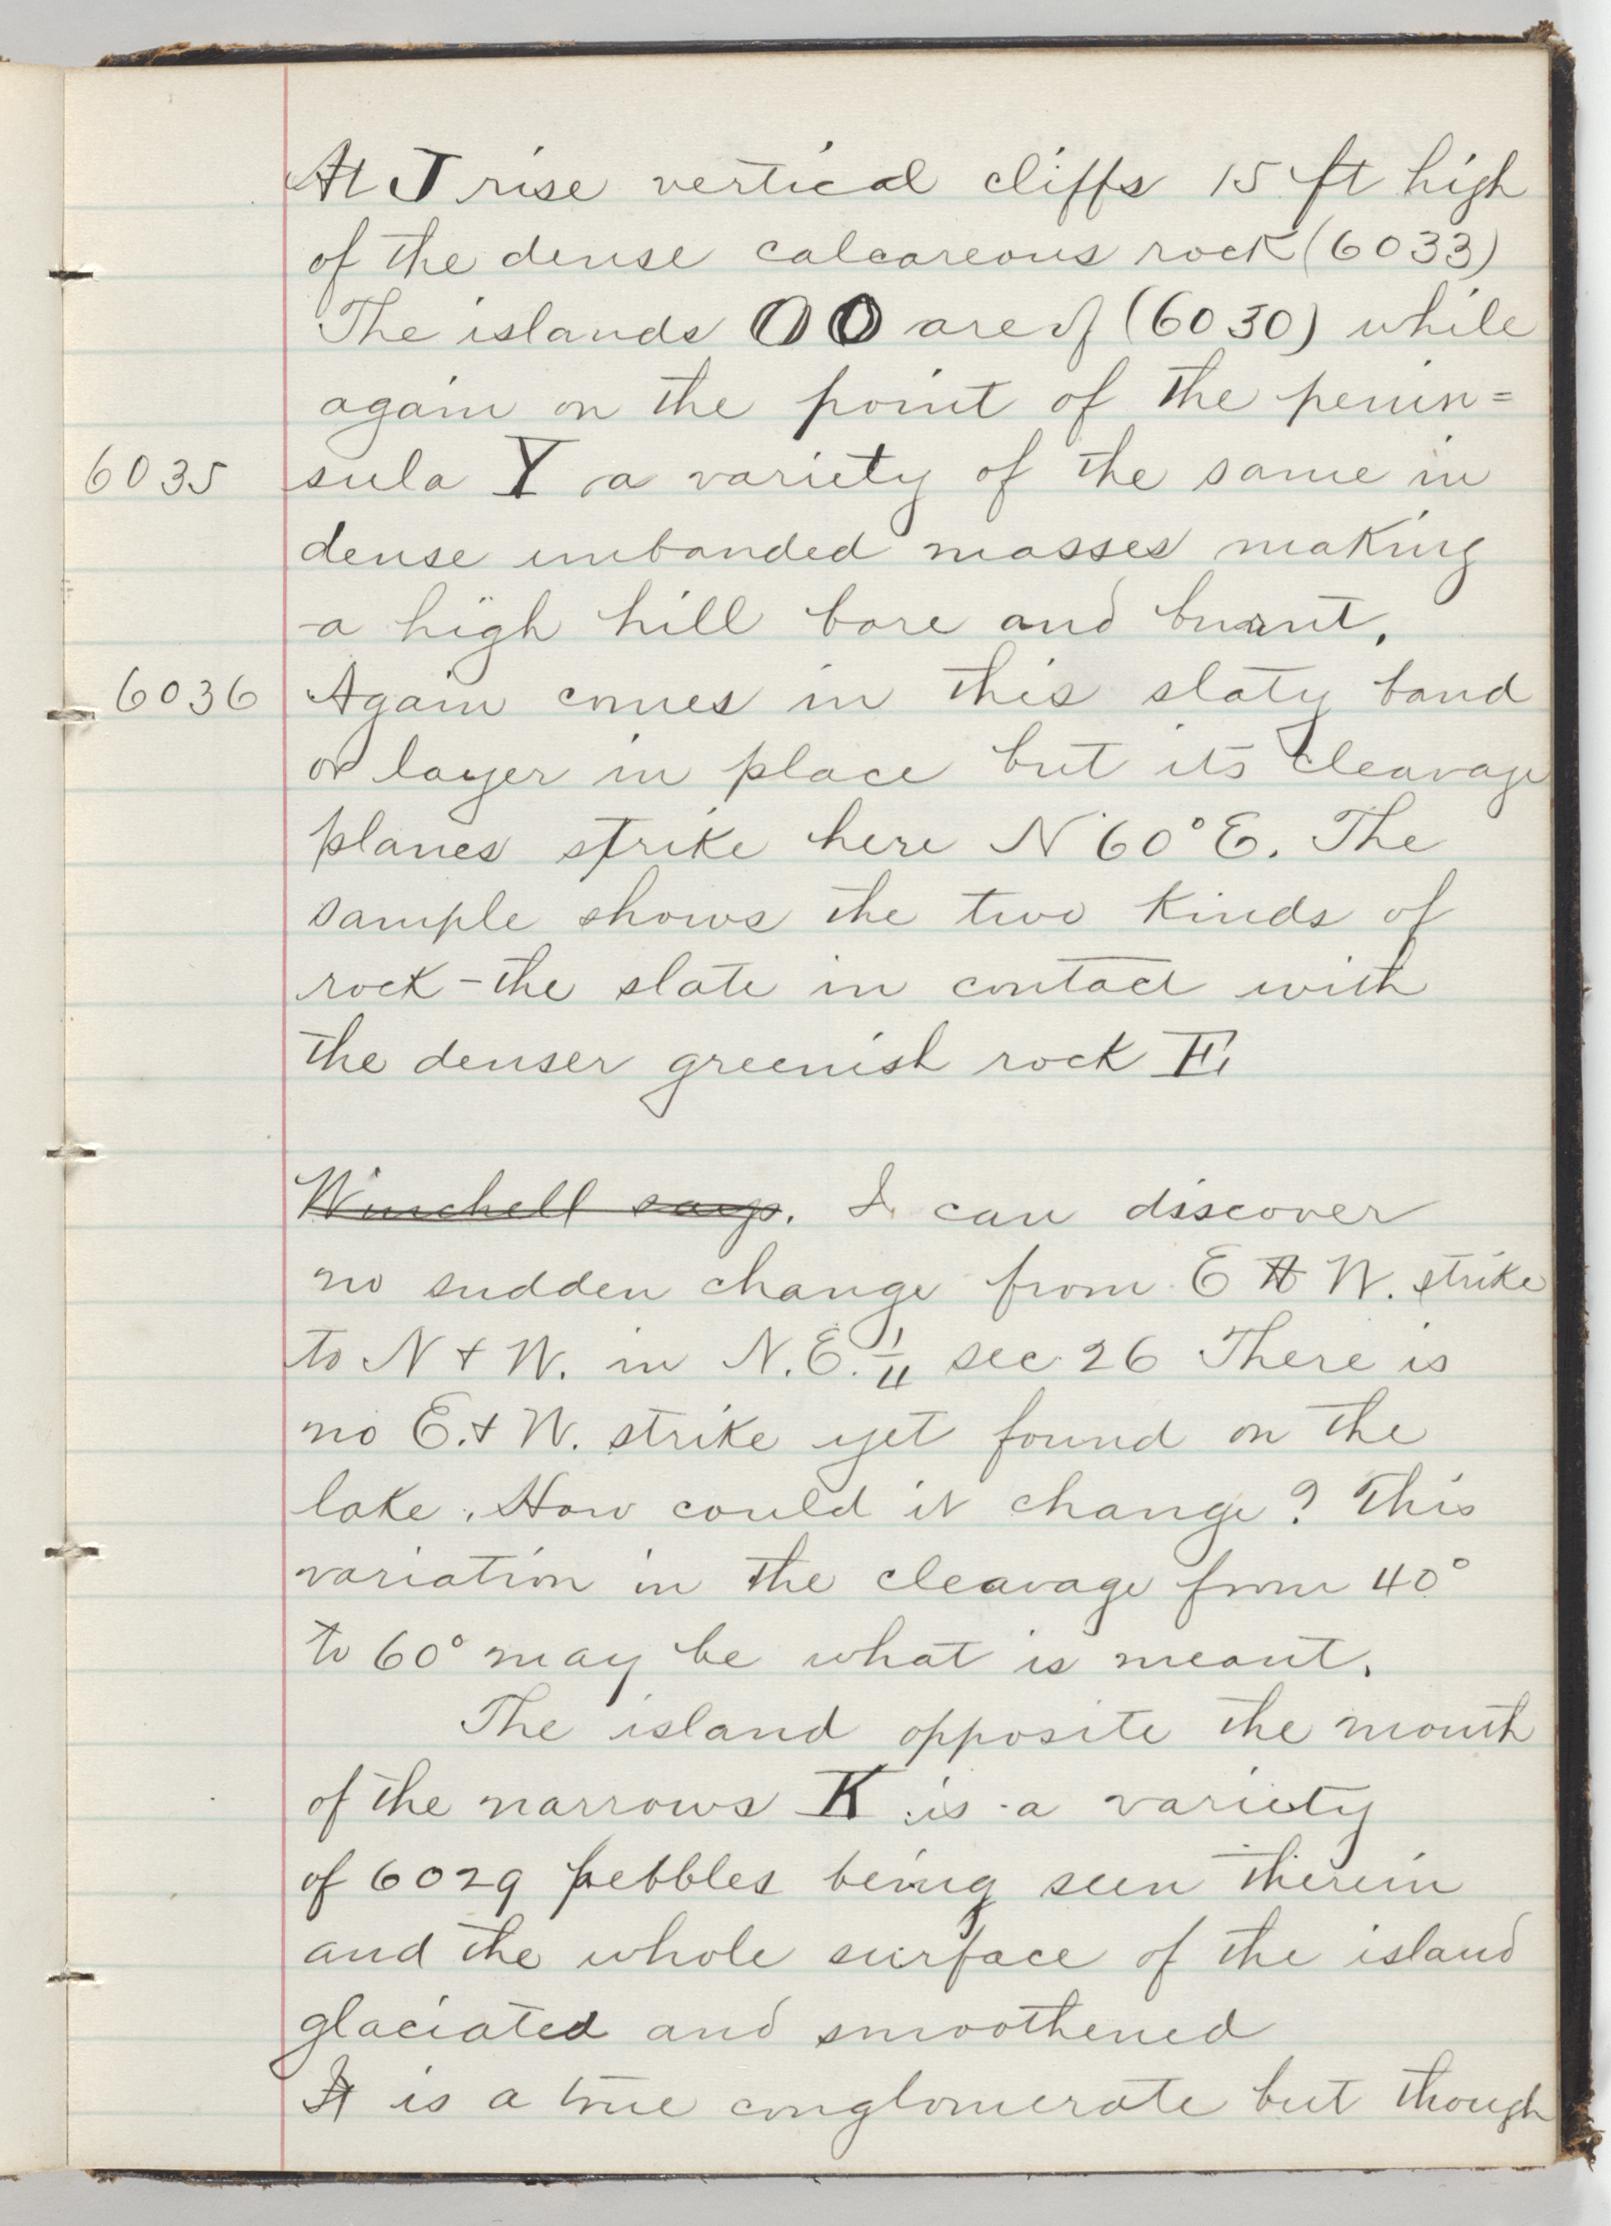 At J rise vertical cliffs 15 ft high
of the dense calcareous rock (6033)
The islands O O are of (6030) while
again on the point of the penin=
6035 sula Y a variety of the same in
dense unbanded masses making
a high hill bare and burnt.
6036 Again comes in this slaty band
or layer in place but its cleavage
planes strike here N 60° E. The
sample shows the two kinds of
rock - the slate in contact with
the denser greenish rock E
Winchell says. I can discover
no sudden change from E & W. strike
to N & W. in N.E. 1/4 sec 26 There is
no E. & W. strike yet found on the
lake. How could it change? This
variation in the cleavage from 40°
to 60° may be what is meant.
The island opposite the mouth
of the narrows K is a variety
of 6029 pebbles being seen therein
and the whole surface of the island
glaciated and smoothened
It is a true conglomerate but though